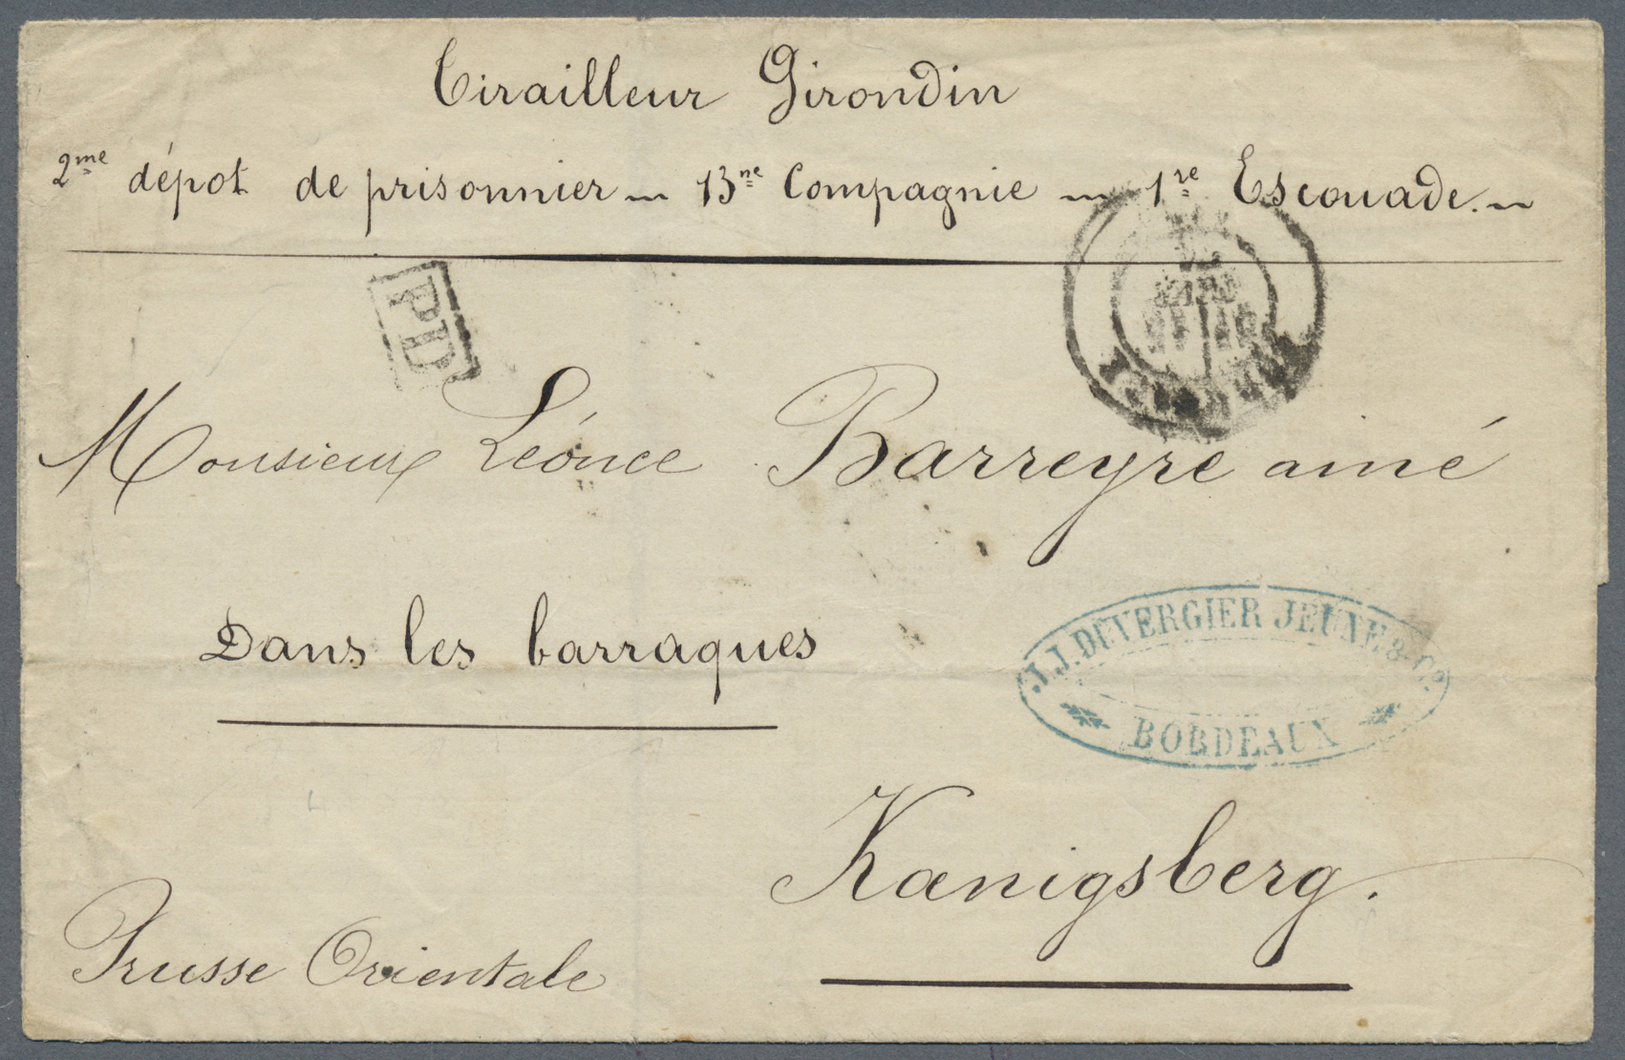 Tirailleur Girondin
2me dépot de prisonnier – 13ne Compagnie – 1re Escouade. –
PD
Monsieur Léonce Barreyre ainé
Dans les barraques
J. J. DUVERGIER JEUNE & Cie.
BORDEAUX
Kœnigsberg.
Prusse Orientale